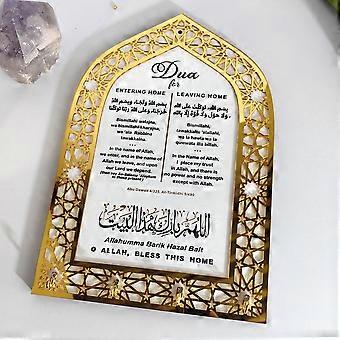 Dua
for
ENTERING HOME
بِسْمِ اللهِ وَلَجْنَا، وَبِسْمِ اللهِ
خَرَجْنَا، وَعَلَى اللهِ رَبِّنَا تَوَكَّلْنَا
Bismillahi walajna,
wa bismillahi kharajna,
wa 'ala Rabbina
tawakkalna.
In the name of Allah,
we enter, and in the name of
Allah, we leave, and upon
our Lord we depend.
LEAVING HOME
بِسْمِ اللهِ، تَوَكَّلْتُ عَلَى اللهِ
، وَلَا حَوْلَ وَلَا قُوَّةَ إِلَّا بِاللهِ
Bismillahi,
tawakkaltu 'alallahi,
wa la hawla wa la
quwwata illa billah.
In the name of Allah,
I place my trust
in Allah, and there is
no power and no strength
except with Allah.
Abu Dawud 4/325, At-Tirmidhi 5/490
اللهم بارك هذا البيت
Allahumma Barik Hazal Bait
O ALLAH, BLESS THIS HOME